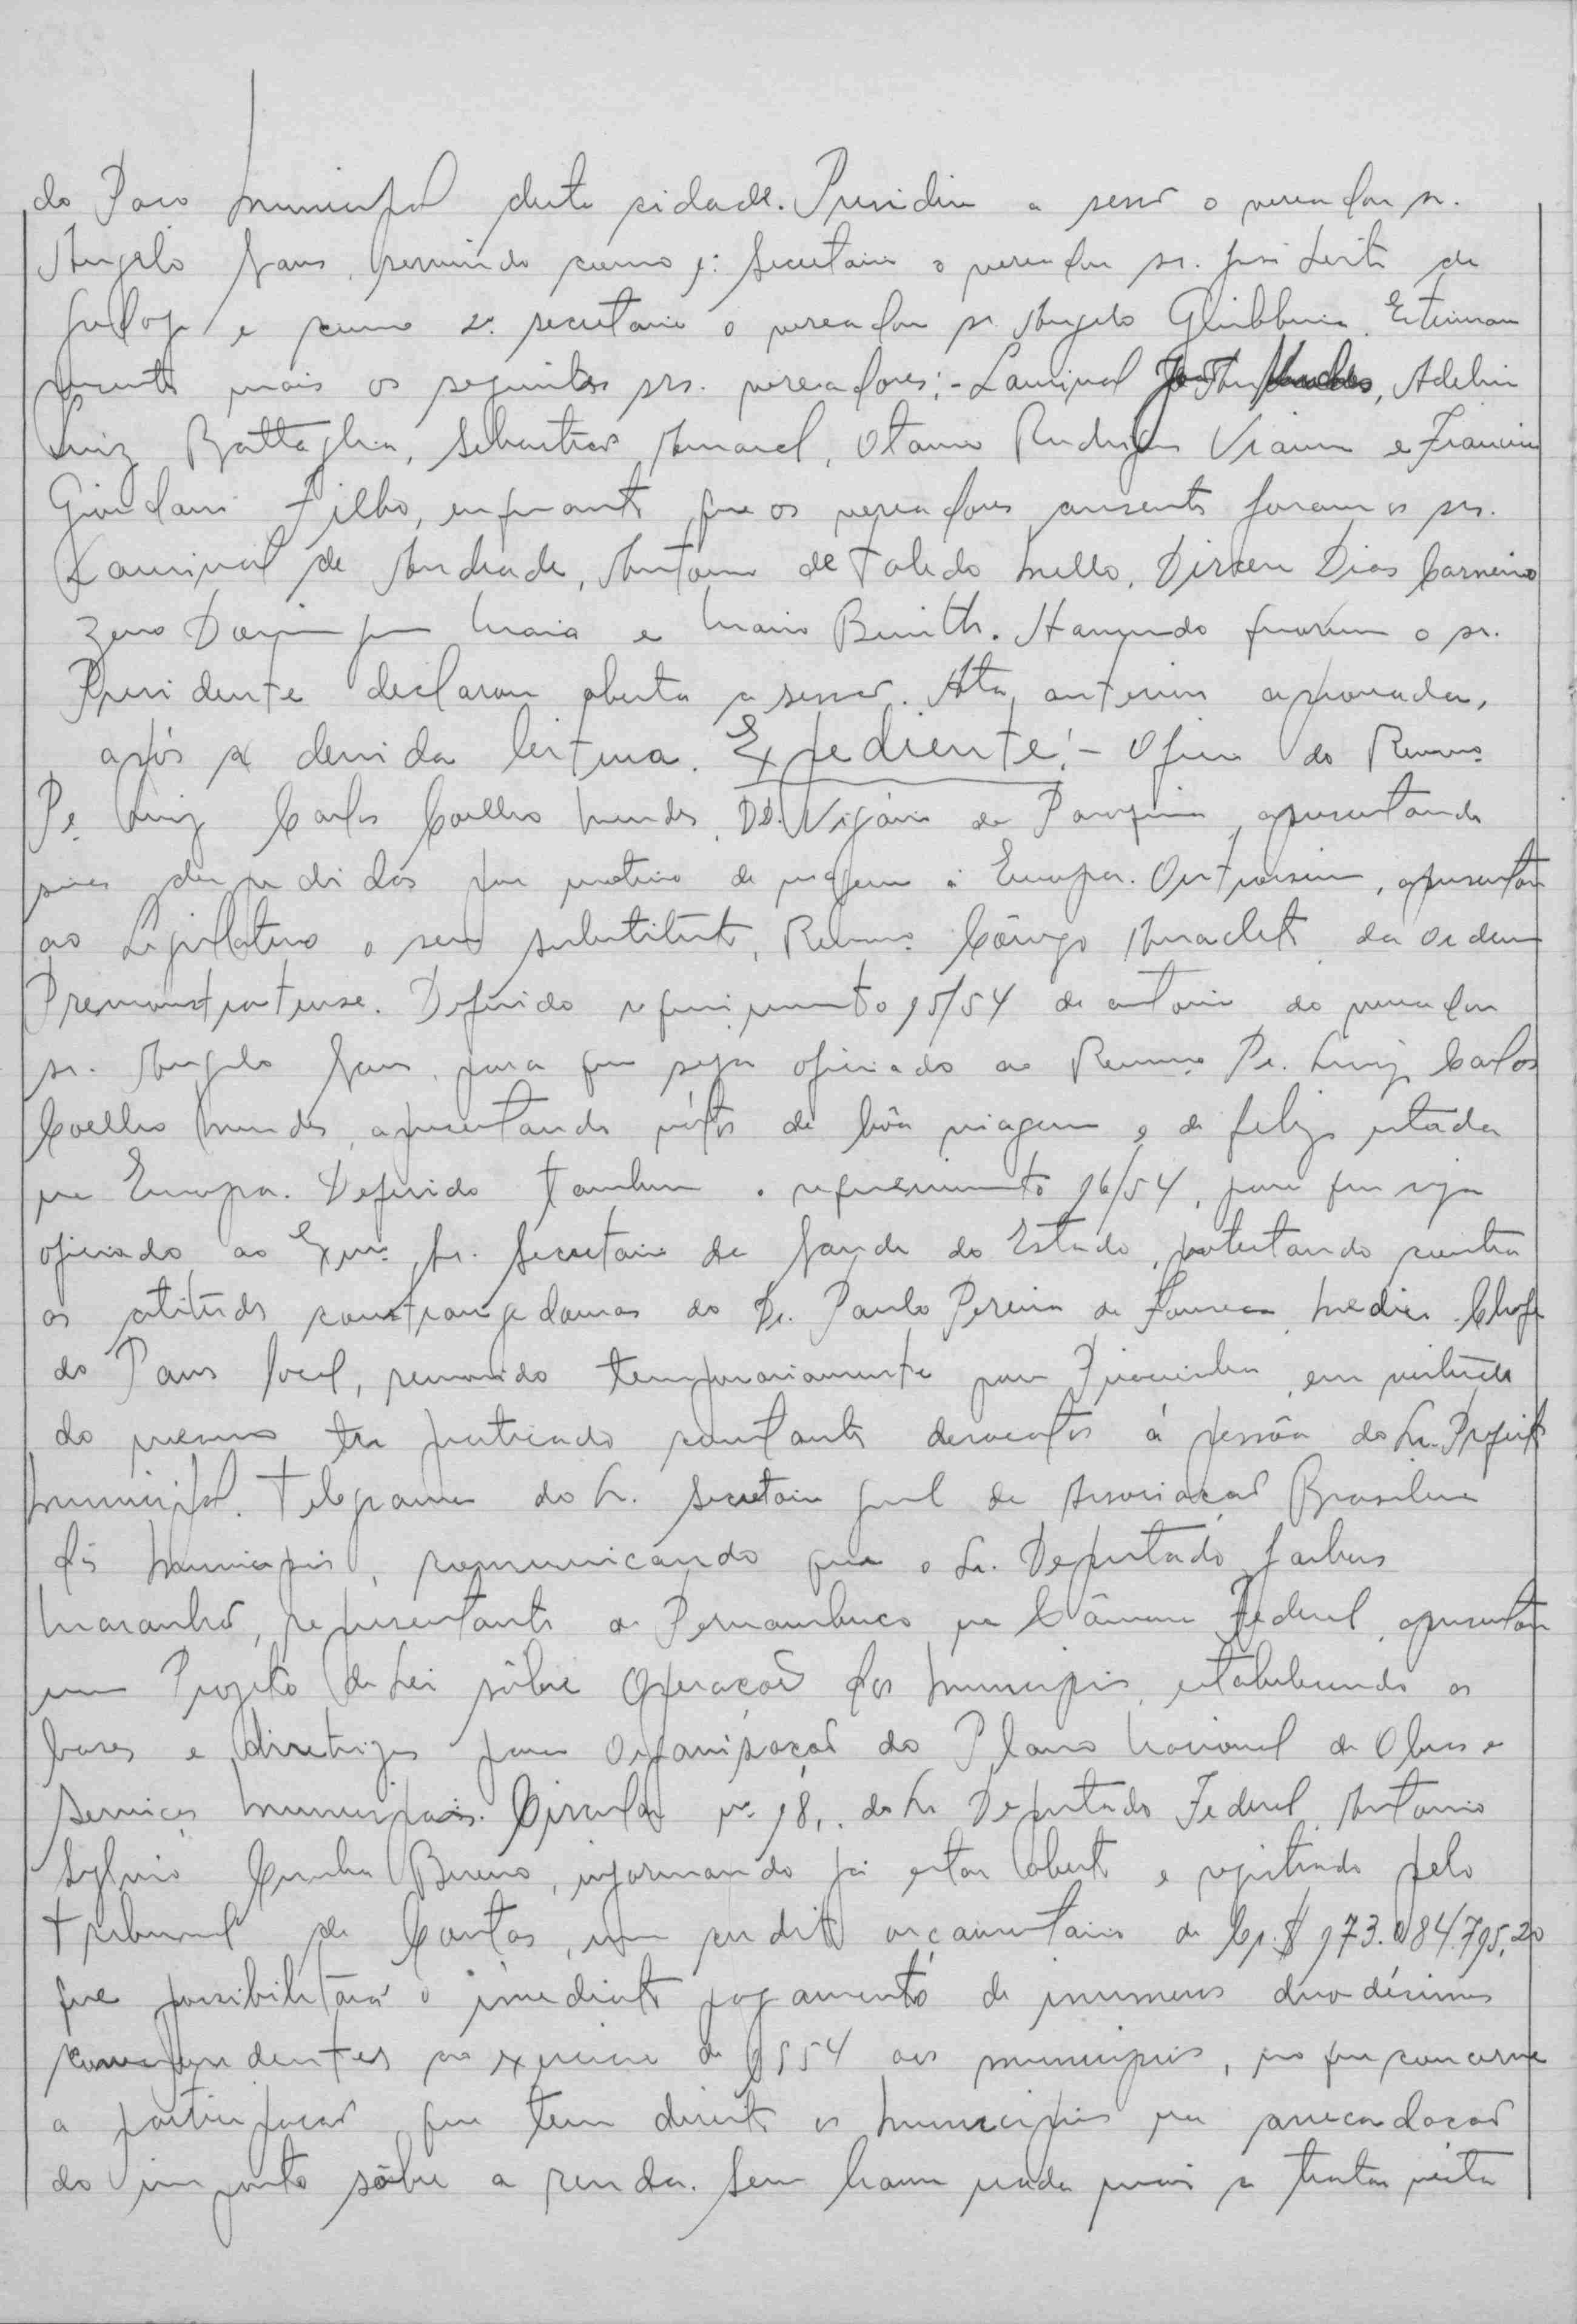 do Paço Municipal desta cidade. Presidiu a sessão o vereador sr.
Angelo servindo como 1º Secretario o vereador sr. José Leite de
Godoy e como 2º secretario o vereador sr. Angelo Estiveram
presente mais os seguintes srs. vereadores:- Lourival Adelin
Luiz Battaglia, Sebastião Amaral, Otavio Rodrigues Viana e Francisco
Giordani Filho, enquanto que os vereadores ausente foram os srs.
Lourival de Andrade, Antonio de Toledo Mello, Dirceu Dias Carneiro
Zeno Maia e Mario Havendo quorum o sr.
Presidente declarou aberta a sessão. Ata anterior aprovada,
após a devida leitura. Expediente:- Oficio do Revmo.
Pe. Luiz Carlos Coelho Mendes, DD. Vigário da Paroquia, apresentando
suas despedidas por motivo de viagem à Europa. Outrossim, apresentou
ao Legislativo o seu substituto, Revmo. Cônego da Ordem
Premonstratense. Deferido requerimento 15/54 de autoria do vereador
sr. Angelo para que seja oficiado ao Revmo. Pe. Luiz Carlos
Coelho Mendes, apresentando vótos de bôa viagem e de feliz estada
na Europa. Deferido tambem o requerimento 16/54, para que seja
oficiado ao Exmo. Sr. Secretario da Saude do Estado, protestando contra
as atitudes constrangedoras do Dr. Paulo Pereira da Fonseca, Medico Chefe
do local, removido temporariamente para em virtude
do mesmo ter praticado constante desacatos á pessôa do Sr. Prefeito
Municipal. Telegrama do Sr. Secretario geral da Associação Brasileira
dos Municipios, comunicando que o Sr. Deputado Jarbas
Maranhão, representante de Pernambuco na Câmara Federal, apresentou
um Projeto de Lei sôbre Operação dos Municipios, estabelecendo as
bases e diretrizes para Organisação do Plano Nacional de Obras e
Serviços Municipais. Circular nº 18, do Sr. Deputado Federal, Antonio
Sylvio Cunha Bueno, informando já estar aberto e registrado pelo
Tribunal de Contas, um credito orçamentario de Cr.$ 173.084.795,20
que possibilitará o imediato pagamento de inumeros duodécimos
correspondentes ao exercicio de 1954 aos municipios, no que concerne
a participação que tem direito os Municipios na arrecadação
do imposto sôbre a renda. Sem haver nada mais a tratar nésta